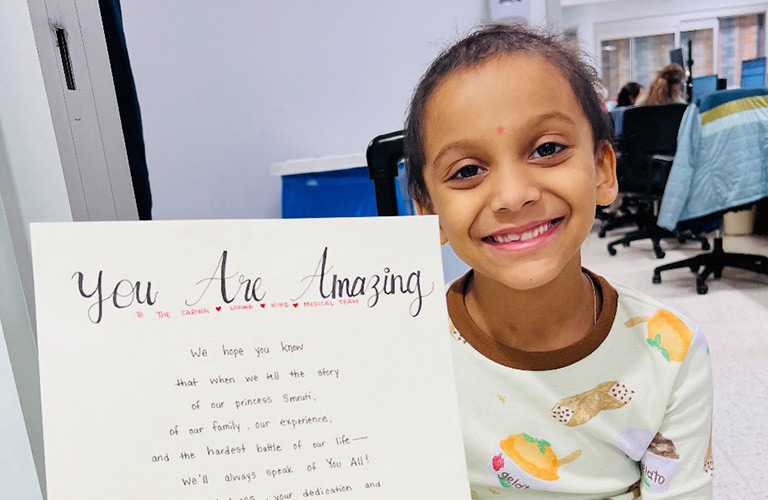 You Are Amazing
TO THE CARING ♥ LOVING ♥ KIND ♥ MEDICAL TEAM
We hope you know
that when we tell the story
of our princess Smruti,
of our family, our experience,
and the hardest battle of our life—
We'll always speak of You All!
, your dedication and
gelato
gelato